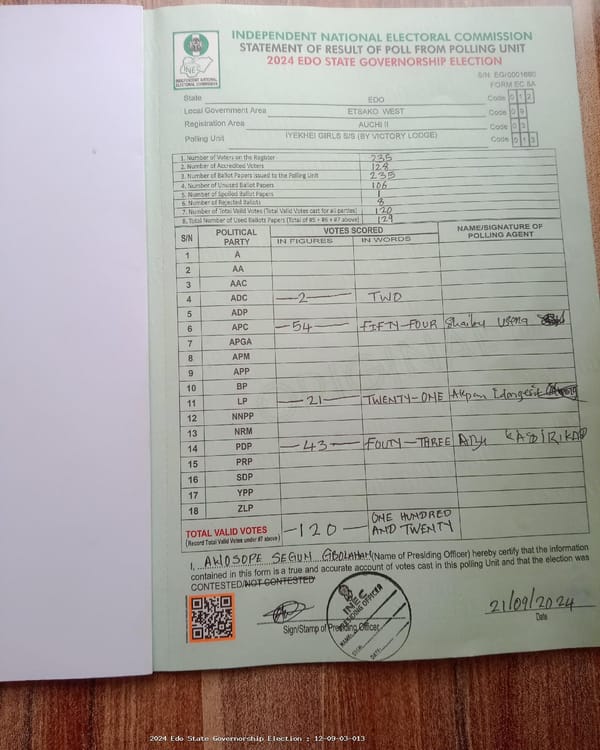 INDEPENDENT NATIONAL ELECTORAL COMMISSION
STATEMENT OF RESULT OF POLL FROM POLLING UNIT
2024 EDO STATE GOVERNORSHIP ELECTION
INEC
INDEPENDENT NATIONAL ELECTORAL COMMISSION
FORM EC 8A
State EDO Code 012
Local Government Area ETSAKO WEST Code 09
Registration Area AUCHI II Code 03
Polling Unit IYEKHEI GIRLS S/S (BY VICTORY LODGE) Code 013
1. Number of Voters on the Register 235
2. Number of Accredited Voters 128
3. Number of Ballot Papers Issued to the Polling Unit 235
4. Number of Unused Ballot Papers 106
5. Number of Spoiled Ballot Papers 1
6. Number of Rejected Ballots 8
7. Number of Total Valid Votes (Total Valid Votes cast for all parties) 120
8. Total Number of Used Ballots Papers (Total of #5 + #6 + #7 above) 129
S/N POLITICAL PARTY VOTES SCORED NAME/SIGNATURE OF POLLING AGENT
IN FIGURES IN WORDS
1 A
2 AA
3 AAC
4 ADC 2 TWO
5 ADP
6 APC 54 FIFTY-FOUR Shaibu
7 APGA
8 APM
9 APP
10 BP
11 LP 21 TWENTY-ONE Akpan
12 NNPP
13 NRM
14 PDP 43 FOUTY-THREE
15 PRP
16 SDP
17 YPP
18 ZLP
TOTAL VALID VOTES -120- ONE HUNDRED AND TWENTY
(Record Total Valid Votes under #7 above)
I, AWOSOPE SEGUN GBOLAHAN (Name of Presiding Officer) hereby certify that the information
contained in this form is a true and accurate account of votes cast in this polling Unit and that the election was
CONTESTED/NOT CONTESTED
INEC
PRESIDING OFFICER
DATE:
Sign/Stamp of Presiding Officer
21/09/2024
Date
2024 Edo State Governorship Election : 12-09-03-013